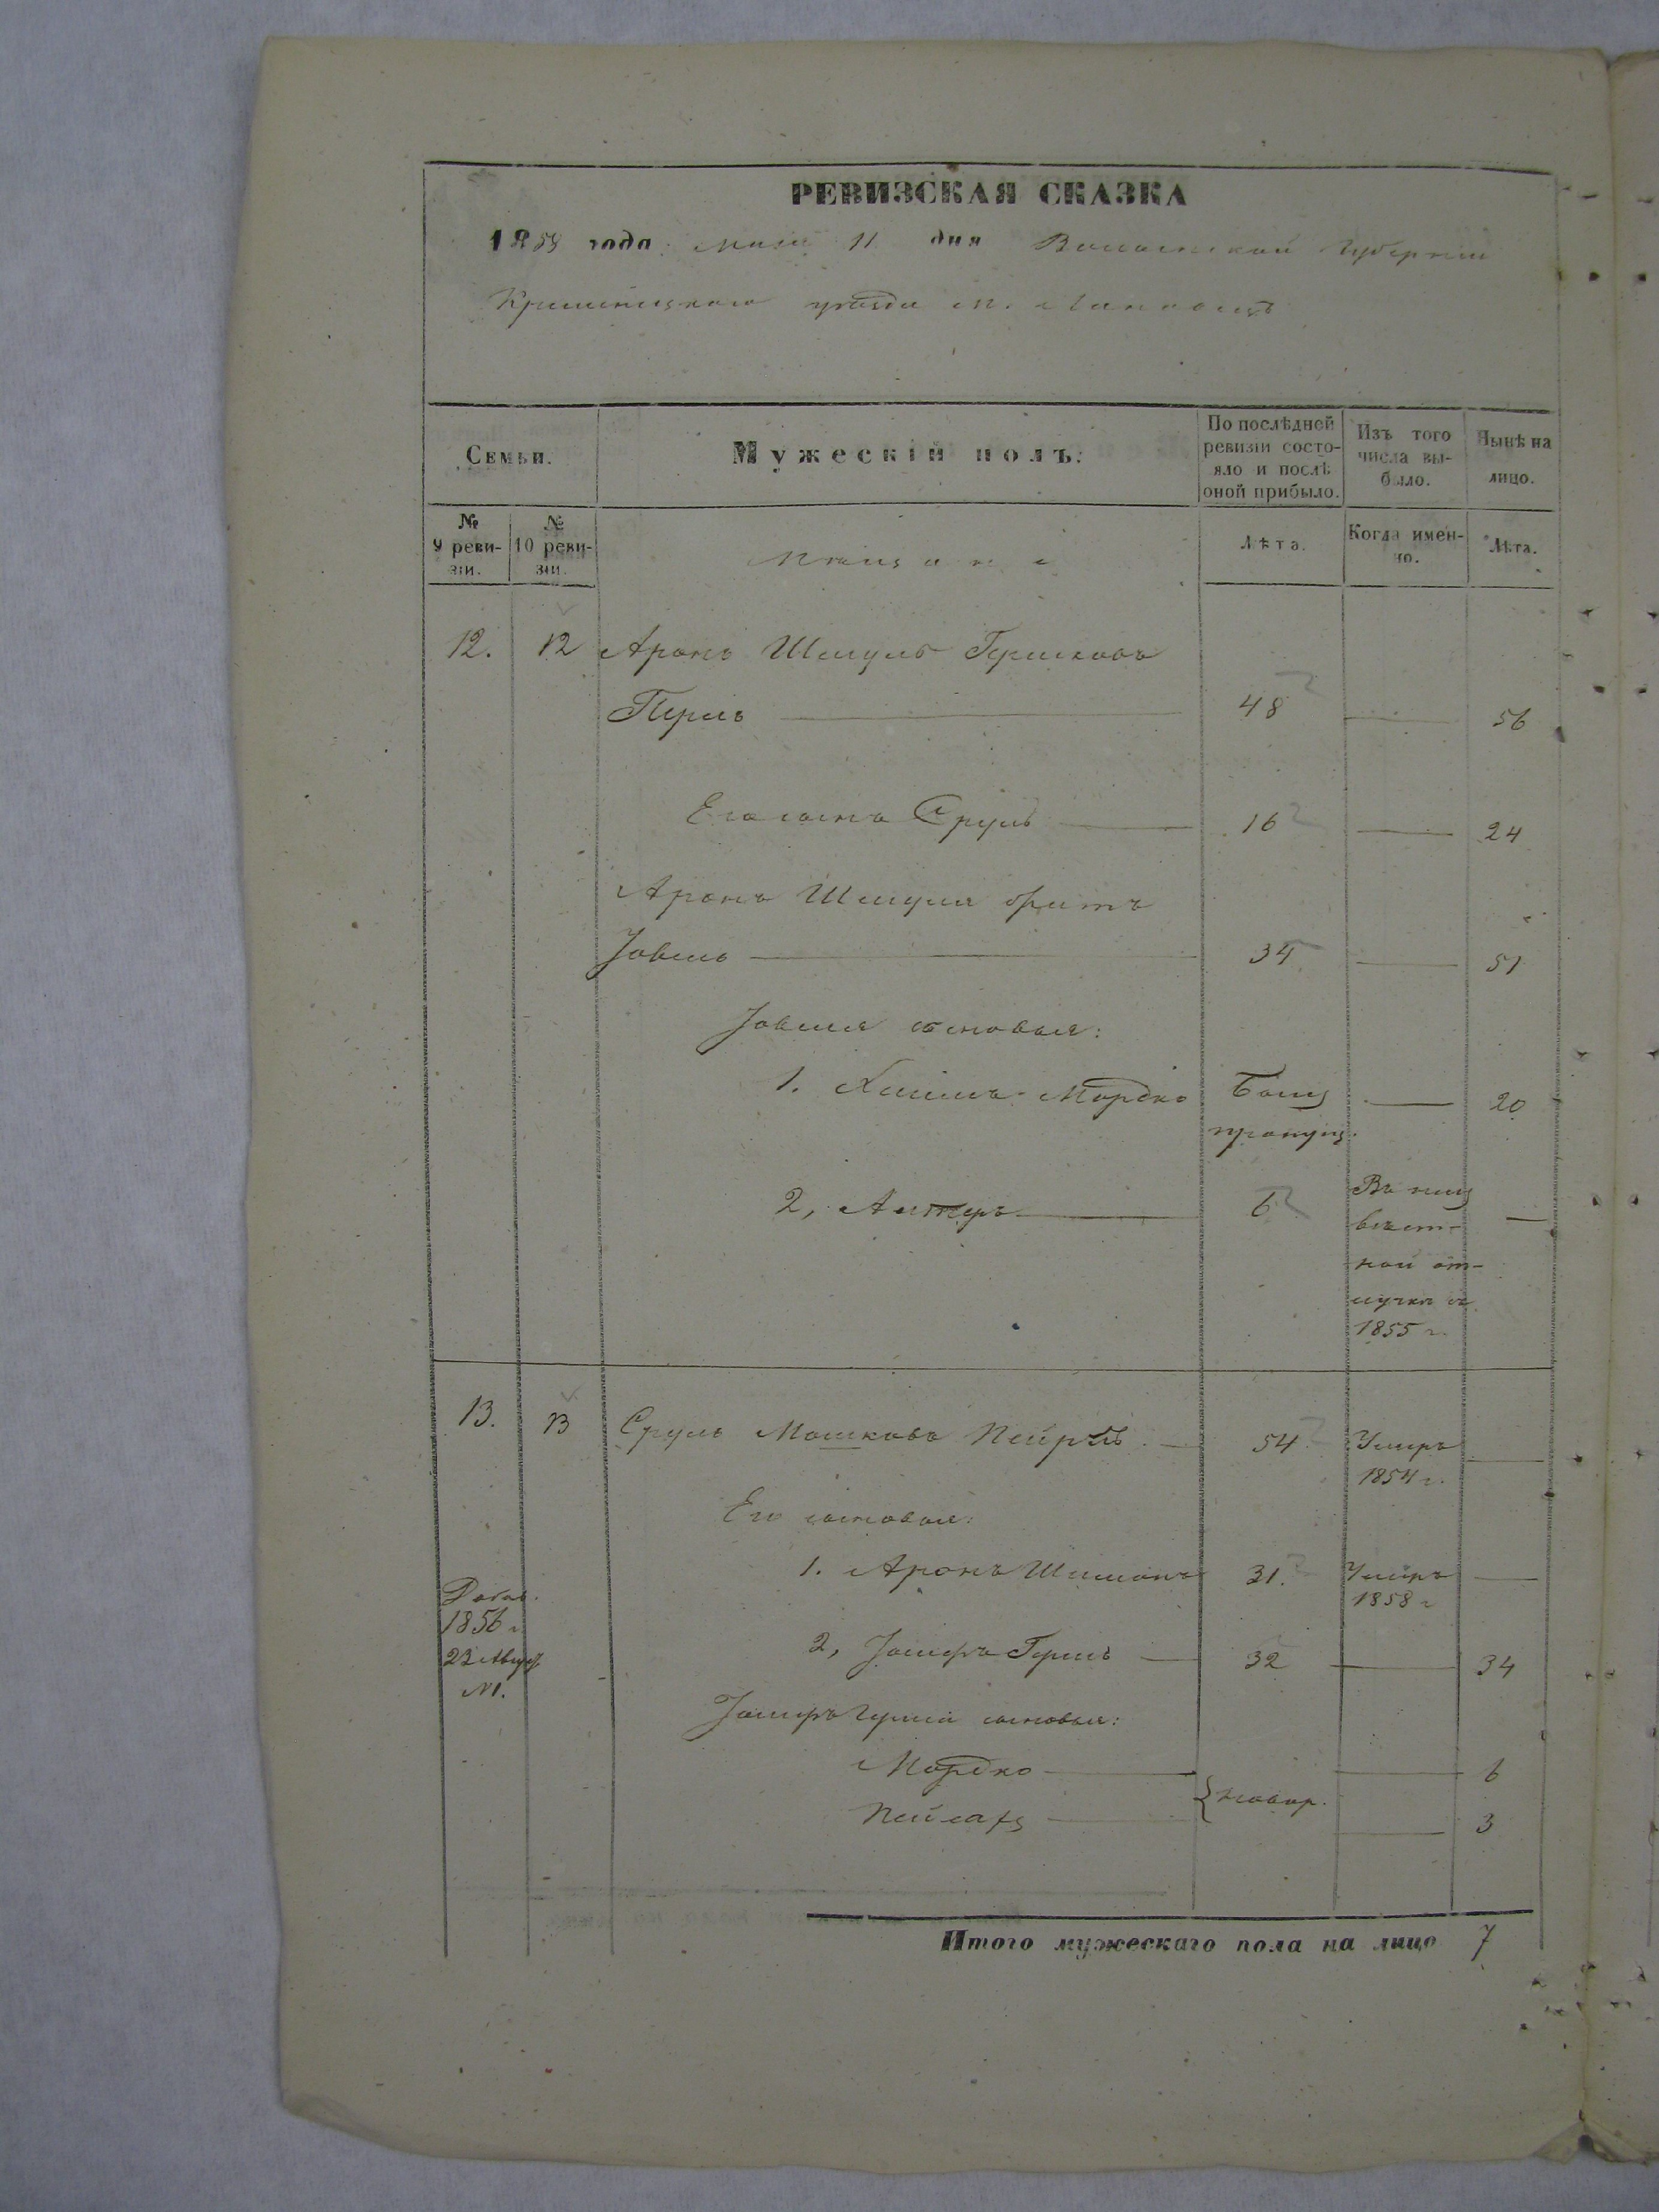 РЕВИЗСКАЯ СКАЗКА
1858 года Мая 11 дня Волынской Губернии
Кременецкаго уѣзда м. Лановецъ
Семьи.
Мужескій полъ.
По послѣдней ревизіи состояло и послѣ оной прибыло.
Изъ того числа выбыло.
Нынѣ на лицо.
№ 9 ревизіи.
№ 10 ревизіи.
Мѣщане
Лѣта.
Когда именно.
Лѣта.
12. 12 Аронъ Шмуль Гершковъ
Перль 48 — 56
Его сынъ Сруль 16 — 24
Аронъ Шмуля братъ
Іовель 34 — 51
Іовеля сыновья:
1. Хаимъ Мордко Былъ пропущ. — 20
2, Алтеръ 6 Въ неизвѣстной отлучкѣ съ 1855 г. —
13. 13 Сруль Мошковъ 54 Умеръ 1854 г. —
Его сыновья:
1. Аронъ Шимонъ 31. Умеръ 1858 г —
Добав. 1856 г. 23 Авгус. №1.
2, Іосифъ Гершъ — 32 — 34
Іосифъ Герша сыновья:
Мордко — 6
новор.
Пейсахъ — 3
Итого мужескаго пола на лицо 7